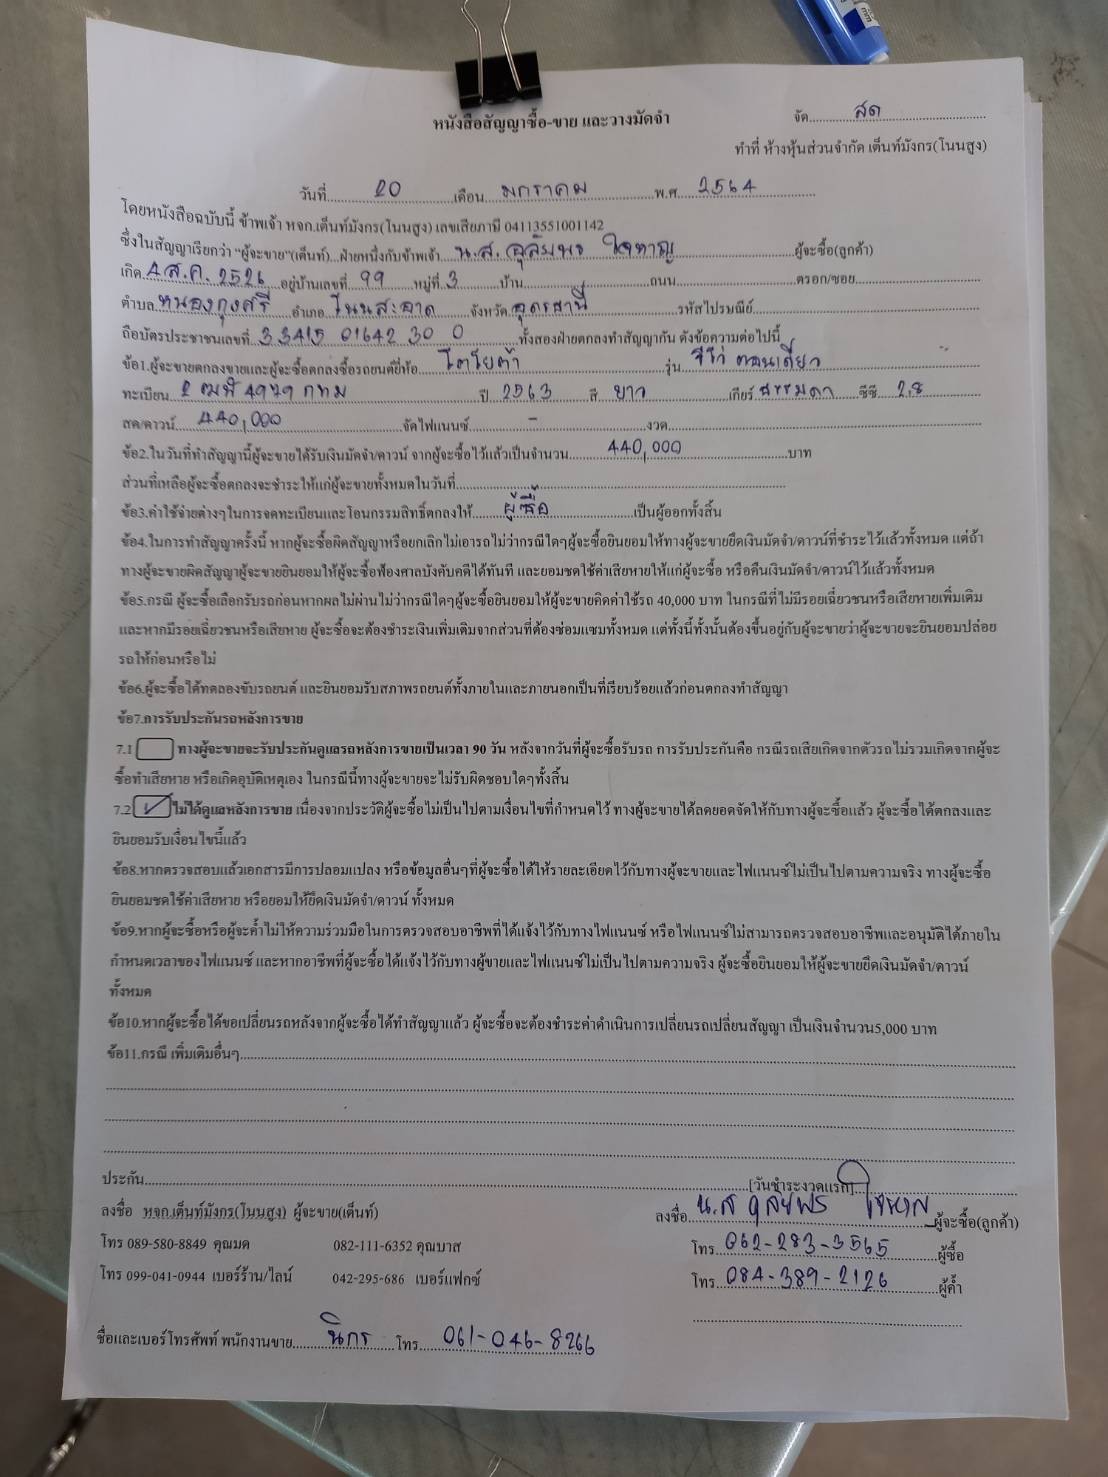 หนังสือสัญญาซื้อ-ขาย และวางมัดจำ
จัด สด
ทำที่ ห้างหุ้นส่วนจำกัด เต็นท์มังกร(โนนสูง)
วันที่ 20 เดือน มกราคม พ.ศ. 2564
โดยหนังสือฉบับนี้ ข้าพเจ้า หจก.เต็นท์มังกร(โนนสูง) เลขเสียภาษี 04113551001142
ซึ่งในสัญญาเรียกว่า "ผู้จะขาย"(เต็นท์)...ฝ่ายหนึ่งกับข้าพเจ้า น.ส. ใจหาญ ผู้จะซื้อ(ลูกค้า)
เกิด 4 ส.ค. 2526 อยู่บ้านเลขที่ 99 หมู่ที่ 3 บ้าน ถนน ตรอก/ซอย
ตำบล หนองกุงศรี อำเภอ โนนสะอาด จังหวัด อุดรธานี รหัสไปรษณีย์
ถือบัตรประชาชนเลขที่ 3 3415 01642 30 0 ทั้งสองฝ่ายตกลงทำสัญญากัน ดังข้อความต่อไปนี้
ข้อ1.ผู้จะขายตกลงขายและผู้จะซื้อตกลงซื้อรถยนต์ยี่ห้อ โตโยต้า รุ่น วีโก่ ตอนเดียว
ทะเบียน 2 ฒฬ 4979 กทม ปี 2563 สี ขาว เกียร์ ธรรมดา ซีซี 2.8
สด/ดาวน์ 440,000 จัดไฟแนนซ์ - งวด
ข้อ2.ในวันที่ทำสัญญานี้ผู้จะขายได้รับเงินมัดจำ/ดาวน์ จากผู้จะซื้อไว้แล้วเป็นจำนวน 440,000 บาท
ส่วนที่เหลือผู้จะซื้อตกลงจะชำระให้แก่ผู้จะขายทั้งหมดในวันที่
ข้อ3.ค่าใช้จ่ายต่างๆในการจดทะเบียนและโอนกรรมสิทธิ์ตกลงให้ ผู้ซื้อ เป็นผู้ออกทั้งสิ้น
ข้อ4.ในการทำสัญญาครั้งนี้ หากผู้จะซื้อผิดสัญญาหรือยกเลิกไม่เอารถไม่ว่ากรณีใดๆผู้จะซื้อยินยอมให้ทางผู้จะขายยึดเงินมัดจำ/ดาวน์ที่ชำระไว้แล้วทั้งหมด แต่ถ้า
ทางผู้จะขายผิดสัญญาผู้จะขายยินยอมให้ผู้จะซื้อฟ้องศาลบังคับคดีได้ทันที และยอมชดใช้ค่าเสียหายให้แก่ผู้จะซื้อ หรือคืนเงินมัดจำ/ดาวน์ไว้แล้วทั้งหมด
ข้อ5.กรณี ผู้จะซื้อเลือกรับรถก่อนหากผลไม่ผ่านไม่ว่ากรณีใดๆผู้จะซื้อยินยอมให้ผู้จะขายคิดค่าใช้รถ 40,000 บาท ในกรณีที่ไม่มีรอยเฉี่ยวชนหรือเสียหายเพิ่มเติม
และหากมีรอยเฉี่ยวชนหรือเสียหาย ผู้จะซื้อจะต้องชำระเงินเพิ่มเติมจากส่วนที่ต้องซ่อมแซมทั้งหมด แต่ทั้งนี้ทั้งนั้นต้องขึ้นอยู่กับผู้จะขายว่าผู้จะขายจะยินยอมปล่อย
รถให้ก่อนหรือไม่
ข้อ6.ผู้จะซื้อได้ทดลองขับรถยนต์ และยินยอมรับสภาพรถยนต์ทั้งภายในและภายนอกเป็นที่เรียบร้อยแล้วก่อนตกลงทำสัญญา
ข้อ7.การรับประกันรถหลังการขาย
7.1 ทางผู้จะขายจะรับประกันดูแลรถหลังการขายเป็นเวลา 90 วัน หลังจากวันที่ผู้จะซื้อรับรถ การรับประกันคือ กรณีรถเสียเกิดจากตัวรถ ไม่รวมเกิดจากผู้จะ
ซื้อทำเสียหาย หรือเกิดอุบัติเหตุเอง ในกรณีนี้ทางผู้จะขายจะไม่รับผิดชอบใดๆทั้งสิ้น
7.2 ✓ ไม่ได้ดูแลหลังการขาย เนื่องจากประวัติผู้จะซื้อไม่เป็นไปตามเงื่อนไขที่กำหนดไว้ ทางผู้จะขายได้ลดยอดจัดให้กับทางผู้จะซื้อแล้ว ผู้จะซื้อได้ตกลงและ
ยินยอมรับเงื่อนไขนี้แล้ว
ข้อ8.หากตรวจสอบแล้วเอกสารมีการปลอมแปลง หรือข้อมูลอื่นๆที่ผู้จะซื้อได้ให้รายละเอียดไว้กับทางผู้จะขายและไฟแนนซ์ไม่เป็นไปตามความจริง ทางผู้จะซื้อ
ยินยอมชดใช้ค่าเสียหาย หรือยอมให้ยึดเงินมัดจำ/ดาวน์ ทั้งหมด
ข้อ9.หากผู้จะซื้อหรือผู้จะค้ำไม่ให้ความร่วมมือในการตรวจสอบอาชีพที่ได้แจ้งไว้กับทางไฟแนนซ์ หรือไฟแนนซ์ไม่สามารถตรวจสอบอาชีพและอนุมัติได้ภายใน
กำหนดเวลาของไฟแนนซ์ และหากอาชีพที่ผู้จะซื้อได้แจ้งไว้กับทางผู้ขายและไฟแนนซ์ไม่เป็นไปตามความจริง ผู้จะซื้อยินยอมให้ผู้จะขายยึดเงินมัดจำ/ดาวน์
ทั้งหมด
ข้อ10.หากผู้จะซื้อได้ขอเปลี่ยนรถหลังจากผู้จะซื้อได้ทำสัญญาแล้ว ผู้จะซื้อจะต้องชำระค่าดำเนินการเปลี่ยนรถเปลี่ยนสัญญา เป็นเงินจำนวน5,000 บาท
ข้อ11.กรณี เพิ่มเติมอื่นๆ
ประกัน [วันชำระงวดแรก]
ลงชื่อ หจก.เต็นท์มังกร(โนนสูง) ผู้จะขาย(เต็นท์)
ลงชื่อ น.ส ใจหาญ ผู้จะซื้อ(ลูกค้า)
โทร 089-580-8849 คุณมด 082-111-6352 คุณบาส
โทร 062-283-3565 ผู้ซื้อ
โทร 099-041-0944 เบอร์ร้าน/ไลน์ 042-295-686 เบอร์แฟกซ์
โทร 084-389-2126 ผู้ค้ำ
ชื่อและเบอร์โทรศัพท์ พนักงานขาย นิกร โทร 061-046-8266